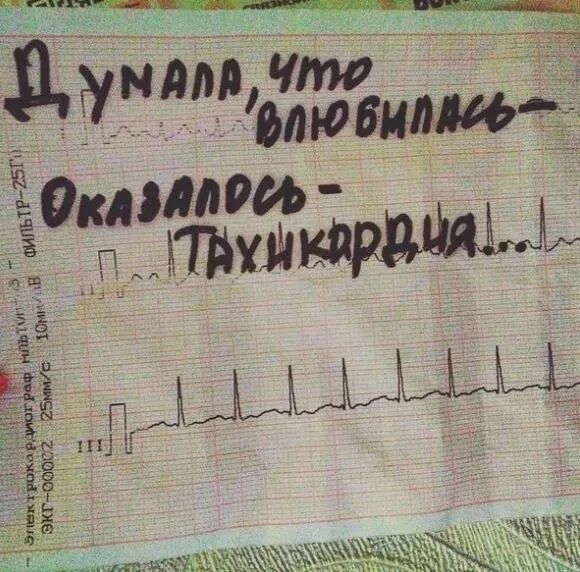 Думала, что
влюбилась-
Оказалось-
Тахикардия...
III
ЭКГ-00002 25мм/с 10мм/мВ ФИЛЬТР-25Гц
- Электрокардиограф